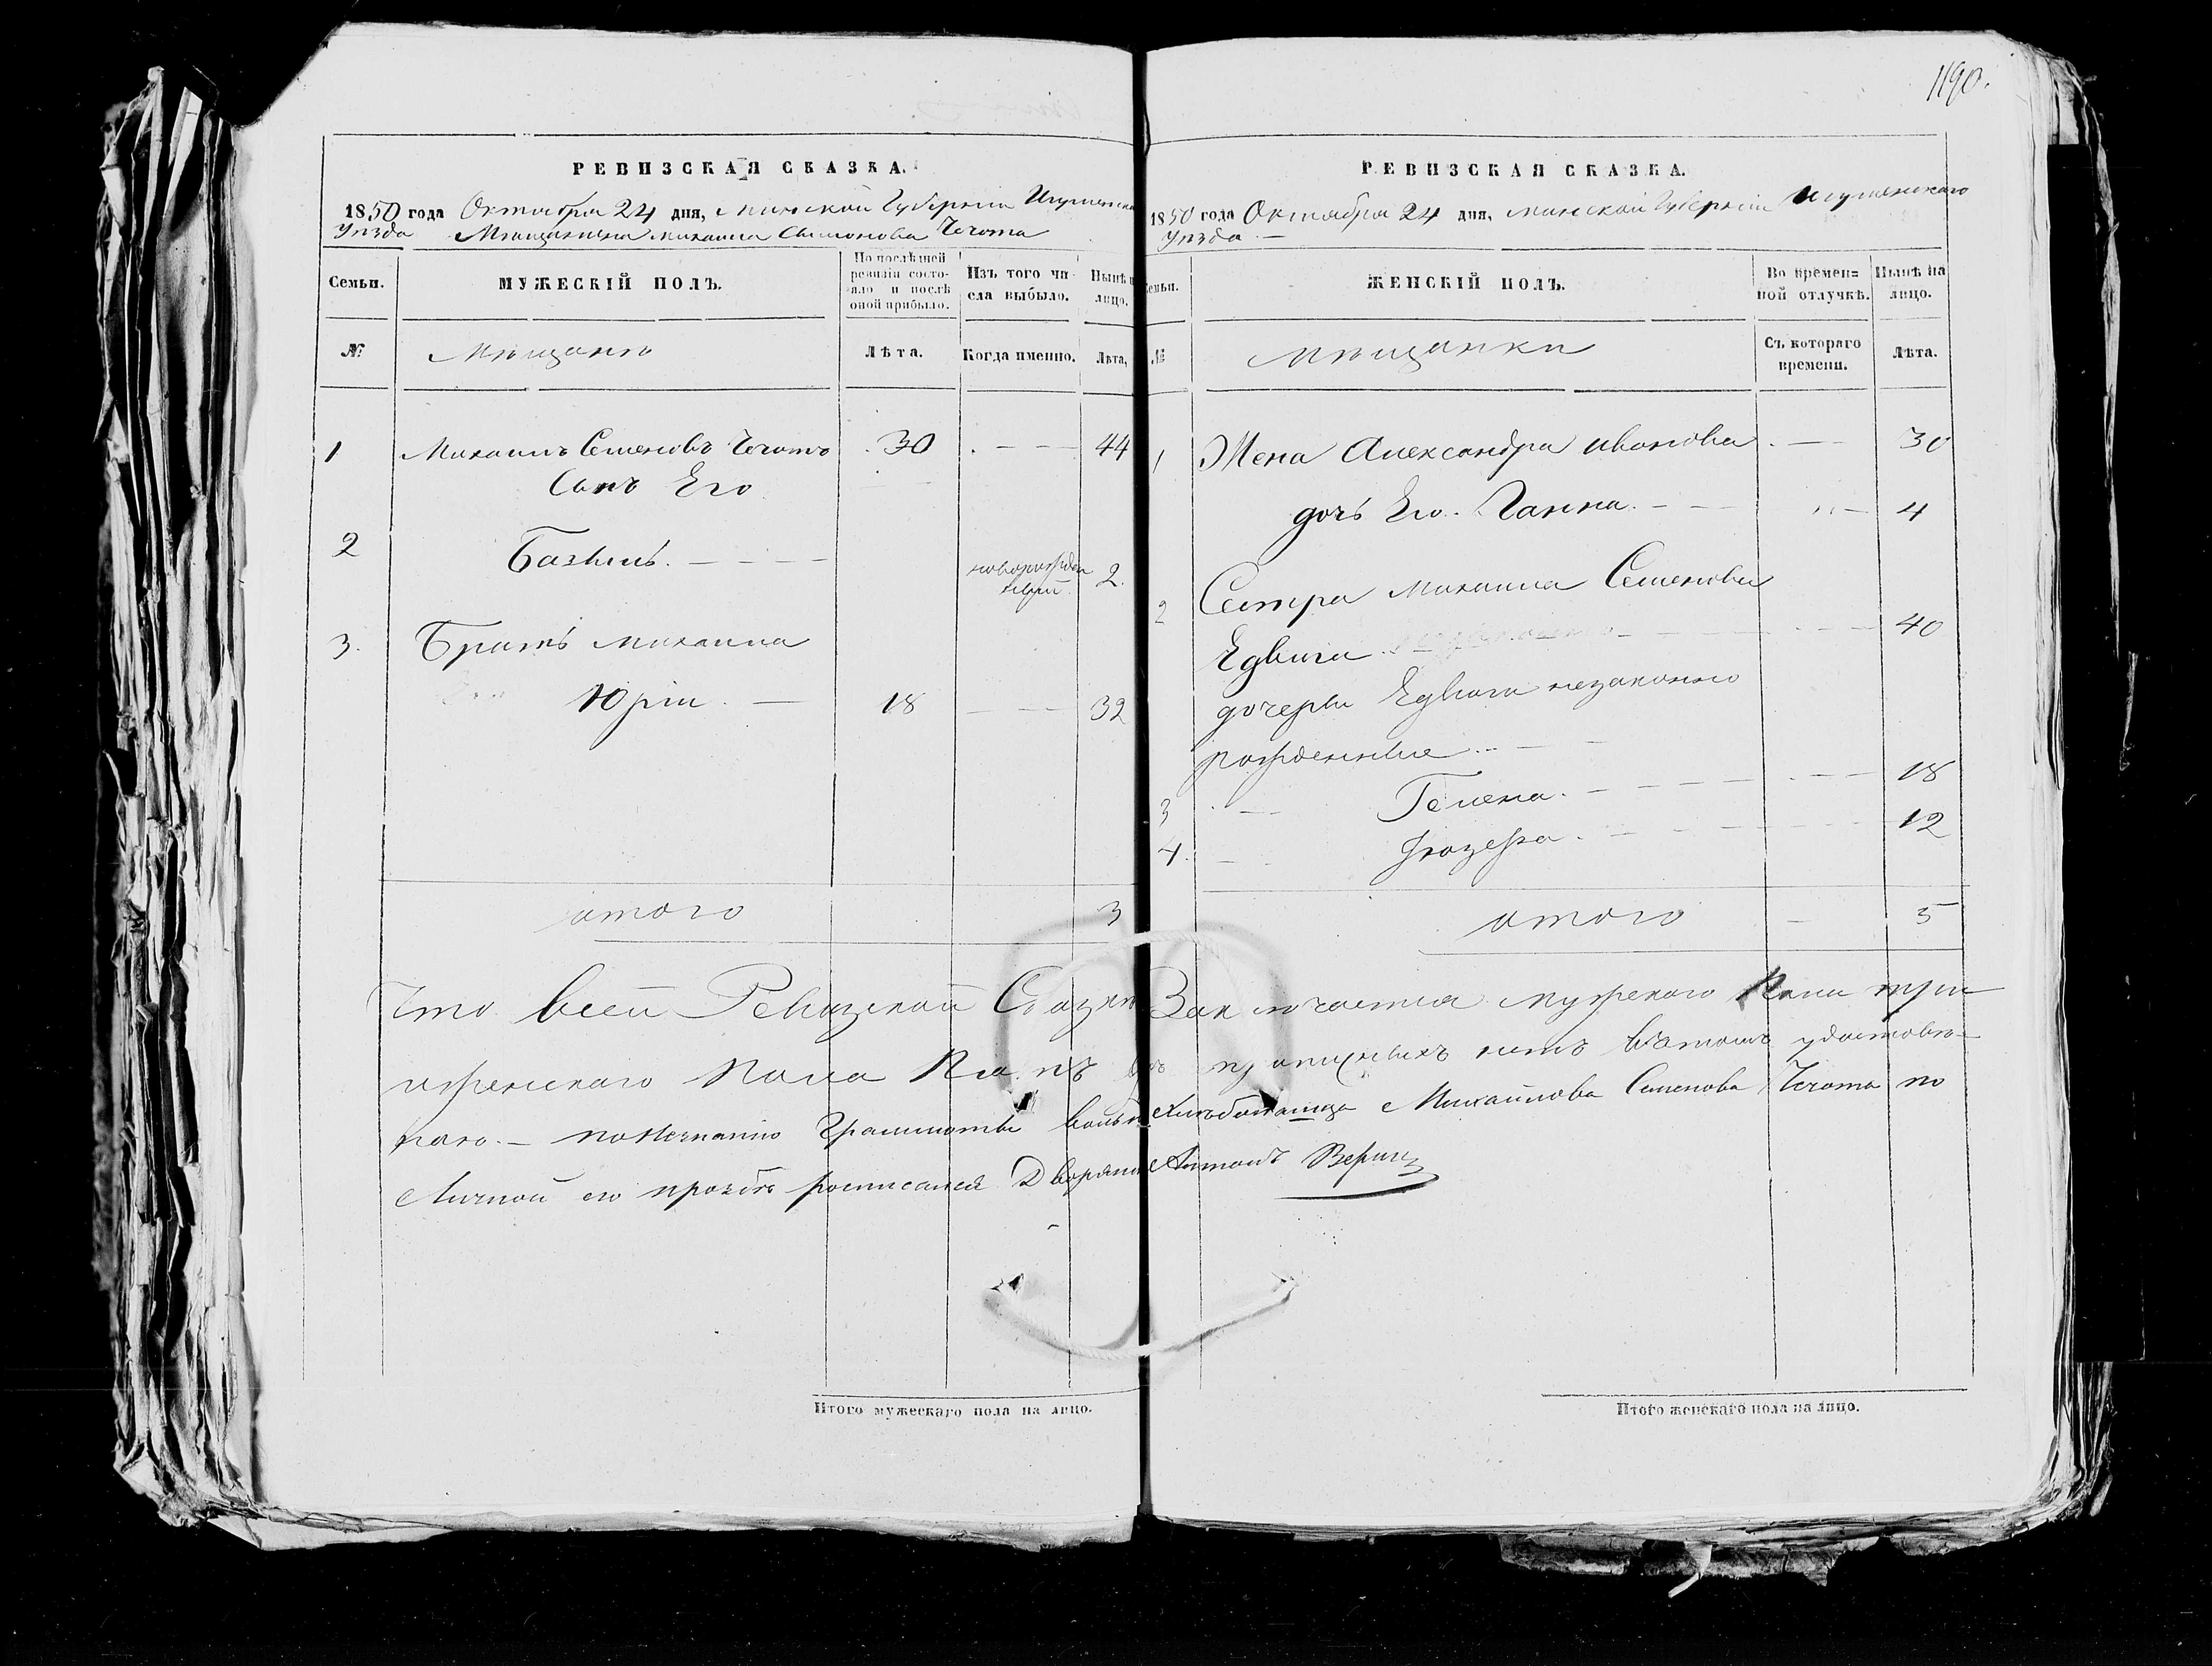 1190.
РЕВИЗСКАЯ СКАЗКА.
1850 года Октября 24 дня, Минской Губернии Игуменска
Уѣзда Мѣщанина Михаила Семенова Чечота
Семьи.
МУЖЕСКІЙ ПОЛЪ.
По послѣдней ревизіи состояло и послѣ оной прибыло.
Изъ того числа выбыло.
Нынѣ н лицо.
№
Мѣщане
Лѣта.
Когда именно.
Лѣта,
1 Михаилъ Семеновъ Чечотъ 30 - - - 44
Сынъ Его
2 Базыль. - - - - новорожден
ный 2.
3. Братъ Михаила
Юрій - 18 - - - 32
итого 3
РЕВИЗСКАЯ СКАЗКА.
1850 года Октября 24 дня, Минской Губерніи Игуменскаго
Уѣзда -
Семьи.
ЖЕНСКІЙ ПОЛЪ.
Во времен=
ной отлучкѣ.
Нынѣ на
лицо.
№
Мѣщанки
Съ котораго
времени.
Лѣта.
1 Жена Александра Иванова - - 30
дочь Его. Ганна. - - - 4
2 Сестра Михаила Семенова
Едвига - - - 40
дочеры Едвиги незаконно
рожденные - - -
3 Гелена. - - - - 18
4. Юзефа. - - - - 12
итого - 5
Что всей Ревизской Сказки Заключается мужескаго Пола три
и женскаго Пола Пять прописныхъ нетъ въ томъ удостовѣ-
ряю. - понезнанию Грammоты Михайлова Семенова Чечота по
Личной его прозбѣ росписался Дворянин Антонъ
Итого мужескаго пола на лицо.
Итого женскаго пола на лицо.